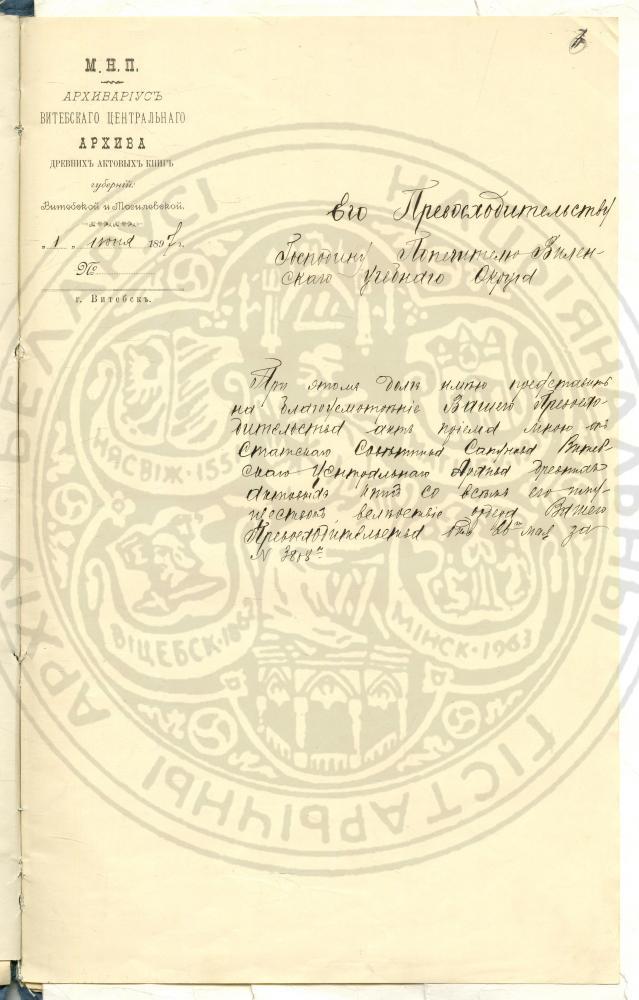 М. Н. П.
АРХИВАРІУСЪ
ВИТЕБСКАГО ЦЕНТРАЛЬНАГО
АРХИВА
ДРЕВНИХЪ АКТОВЫХЪ КНИГЪ
губерній:
Витебской и Могилевской.
„ 1 „ іюня 1897 г.
№
г. Витебскъ.
Его Превосходительству
Господину Попечителю Вилен-
скаго Учебнаго Округа
При этомъ долгъ имѣю представить
на благоусмотрѣніе Вашего Превосхо-
дительства актъ пріема мною отъ
Статскаго Совѣтника Сапунова Витеб-
скаго Центральнаго Архива древнихъ
актовыхъ книгъ со всѣмъ его иму-
ществомъ вслѣдствіе ордера Вашего
Превосходительства отъ 26го мая за
N 3813м.
АРХІЎ БЕЛА
НАЦЫЯНАЛЬНЫ
ГІСТАРЫЧНЫ
ВІЦЕБСК·1862
МІНСК·1963